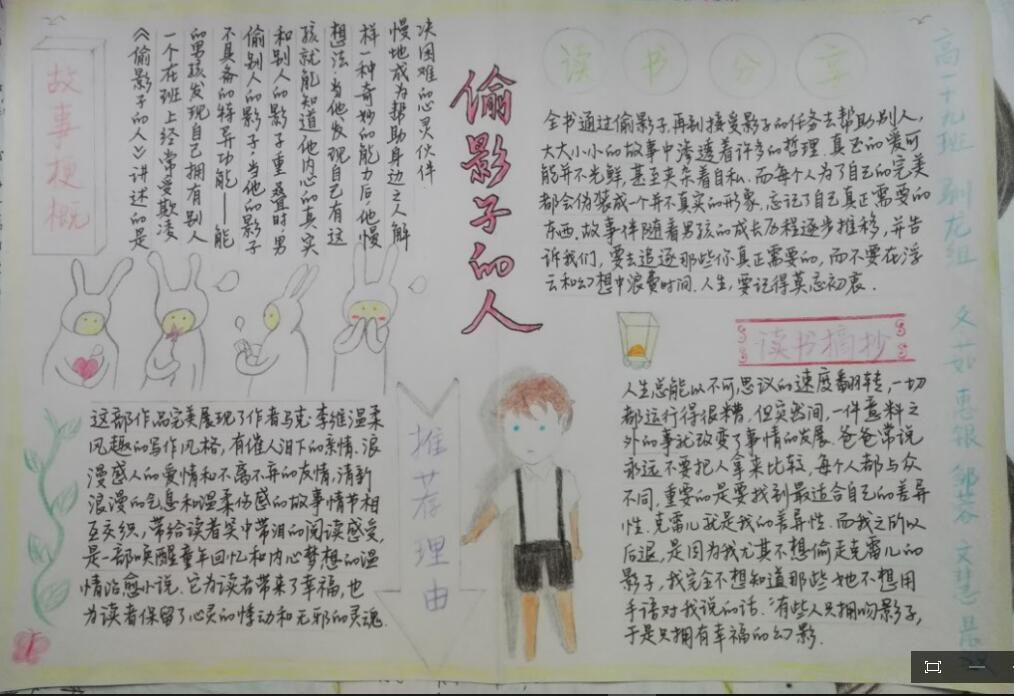 偷影子的人
故事梗概
《偷影子的人》讲述的是
一个在班上经常受欺凌
的男孩发现自己拥有别人
不具备的特异功能——能
偷别人的影子.当他的影子
和别人的影子重叠时男
孩就能知道他内心的真实
想法.当他发现自己有这
样一种奇妙的能力后.他慢
慢地成为帮助身边之人解
决困难的心灵伙伴
读书分享
全书通过偷影子,再到接受影子的任务去帮助别人,
大大小小的故事中渗透着许多的哲理.真正的爱可
能并不光鲜,甚至夹杂着自私.而每个人为了自己的完美
都会伪装成一个并不真实的形象,忘记了自己真正需要的
东西.故事伴随着男孩的成长历程逐步推移,并告
诉我们,要去追逐那些你真正需要的,而不要在浮
云和幻想中浪费时间.人生,要记得莫忘初衷.
推荐理由
这部作品完美展现了作者马克·李维温柔
风趣的写作风格,有催人泪下的亲情.浪
漫感人的爱情和不离不弃的友情,清新
浪漫的气息和温柔伤感的故事情节相
互交织,带给读者笑中带泪的阅读感受,
是一部唤醒童年回忆和内心梦想的温
情治愈小说.它为读者带来了幸福,也
为读者保留了心灵的悸动和无邪的灵魂.
读书摘抄
人生总能以不可思议的速度翻转,一切
都运行得很糟,但突然间,一件意料之
外的事就改变了事情的发展.爸爸常说
永远不要把人拿来比较,每个人都与众
不同,重要的是要找到最适合自己的差异
性.克雷儿就是我的差异性.而我之所以
后退,是因为我尤其不想偷走克雷儿的
影子,我完全不想知道那些她不想用
手语对我说的话."有些人只拥吻影子,
于是只拥有幸福的幻影.
高一十九班 驯龙组 文茹 惠银 邹蓉 文慧